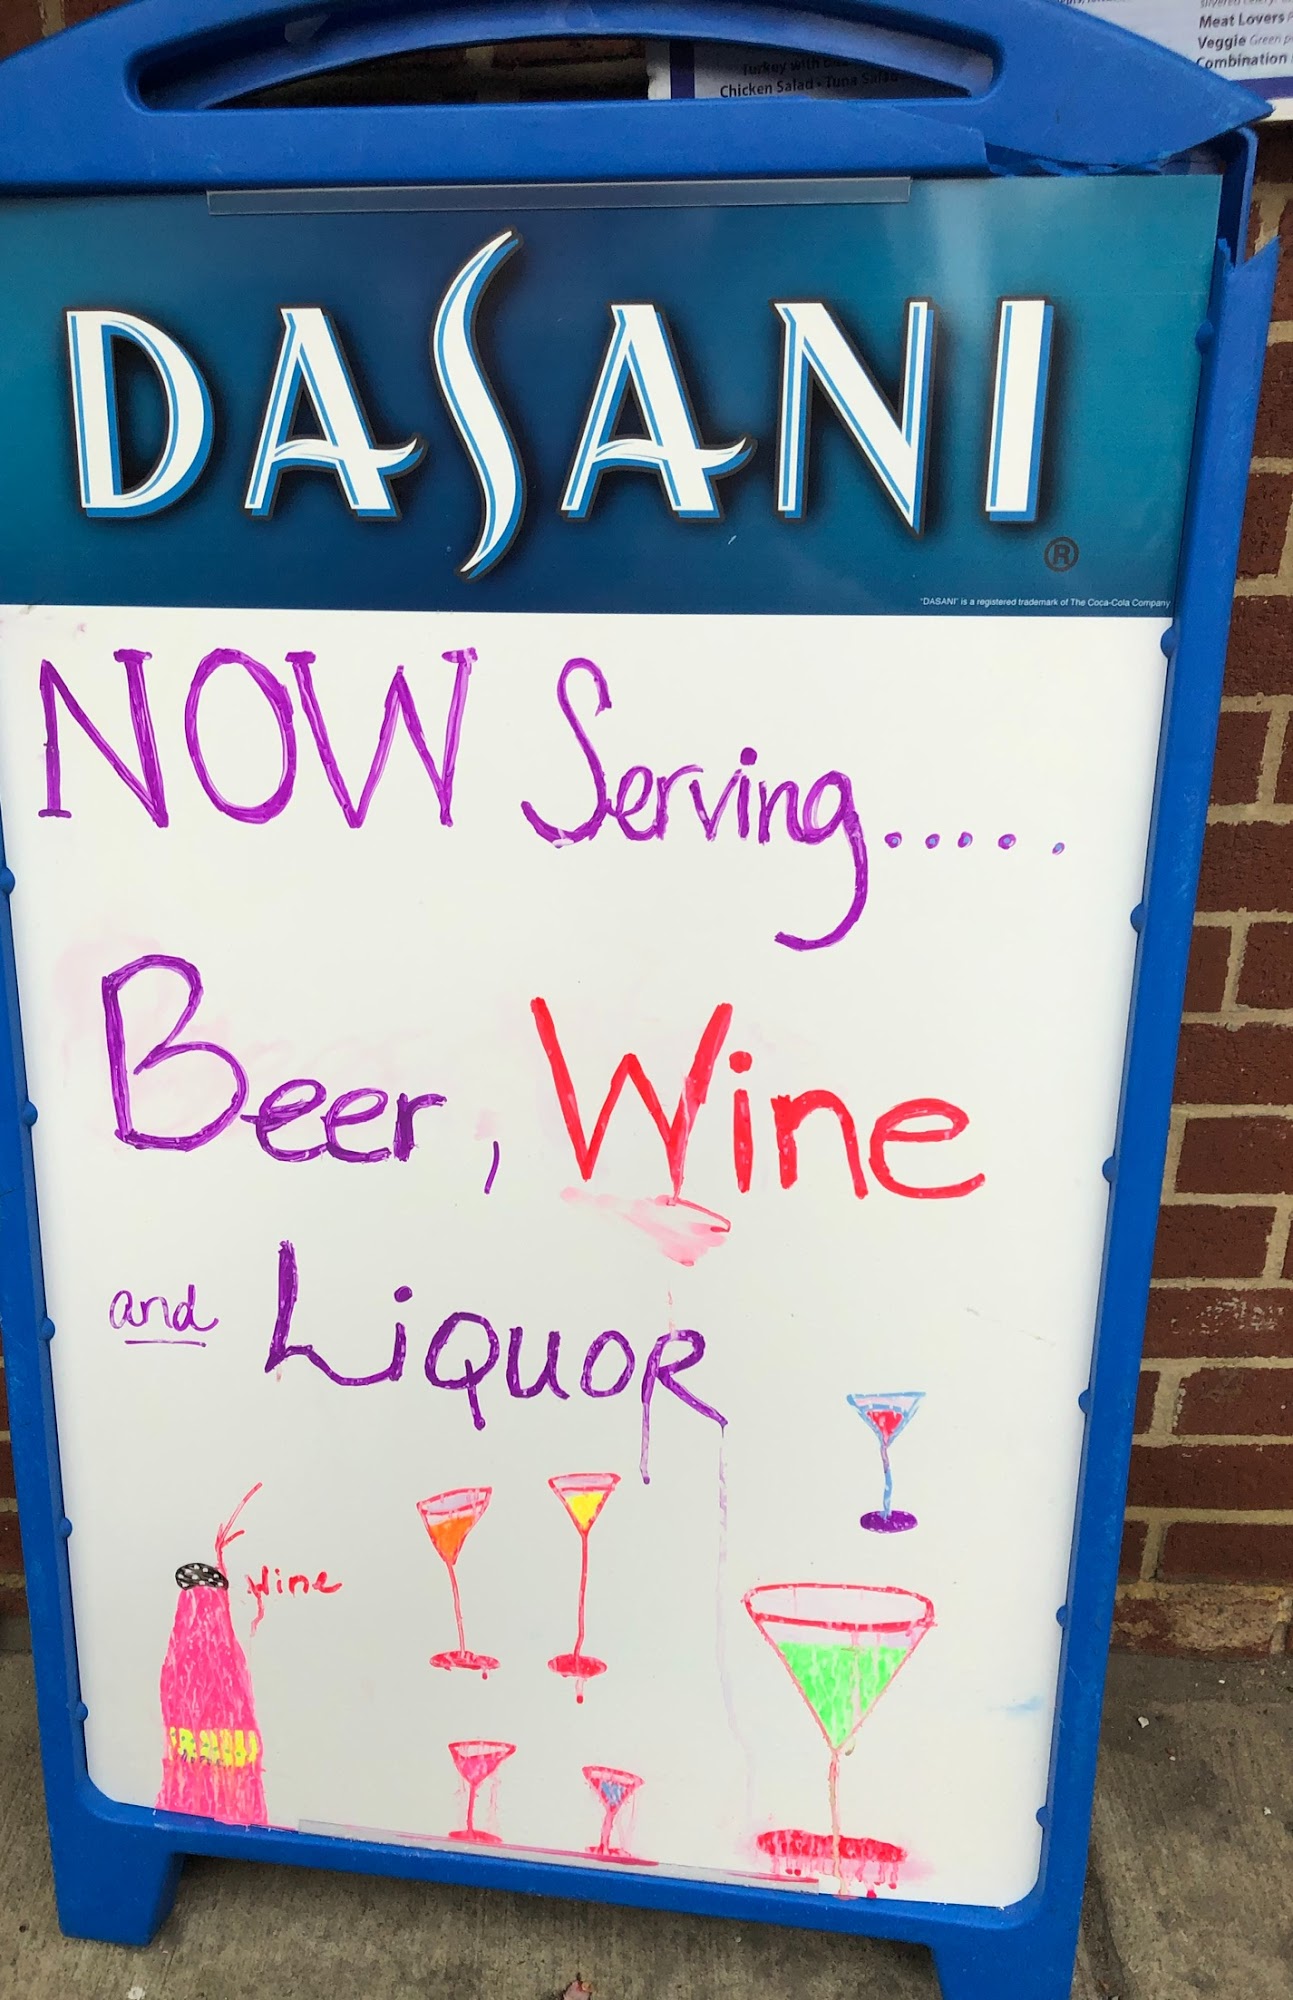 Meat Lovers
Veggie Green
Combination
Turkey with
Chicken Salad • Tuna Salad
DASANI®
"DASANI" is a registered trademark of The Coca-Cola Company
NOW Serving......
Beer, Wine
and LiQUOR
Wine